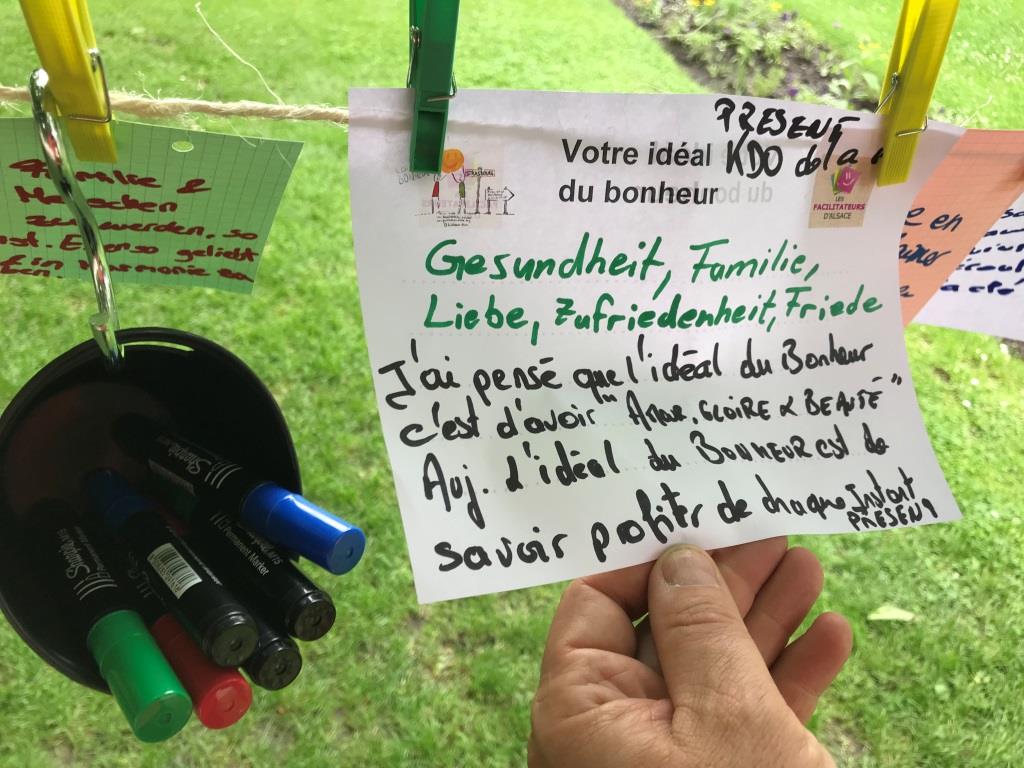 Familie &
werden, so
geliebt
Harmonie
PRESENT
KDO de la
Votre idéal
du bonheur
LES
FACILITATEURS
D'ALSACE
Gesundheit, Familie,
Liebe, Zufriedenheit, Friede
J'ai pensé que l'idéal du Bonheur
c'est d'avoir "AMOUR, GLOIRE & BEAUTÉ"
Auj. l'idéal du BONHEUR est de
savoir profiter de chaque Instant
PRESENT
en
Permanent Marker